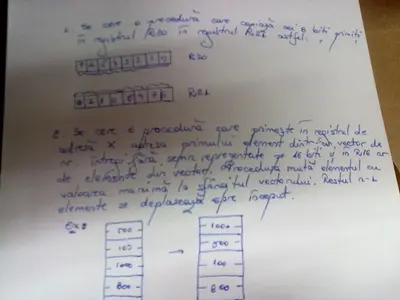 1. Se cere o procedură care copiază cei 8 biți primiți
în registrul R20 în registrul R21 astfel:
R20
R21
2. Se cere o procedură care primește în registrul de
adresă X adresa primului element dintr-un vector de
nr. întregi fără semn reprezentate pe 16 biți și în R16 nr
de elemente din vector. Procedura mută elementul cu
valoarea maximă la sfârșitul vectorului. Restul n-1
elemente se deplasează spre început.
Ex:
500 → 1000
100 500
1000 100
800 800